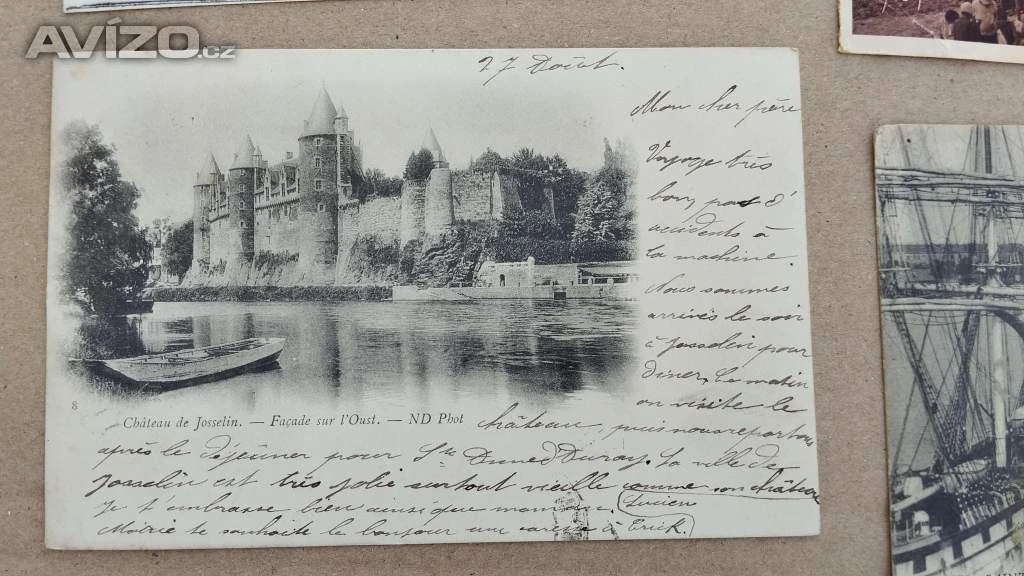 AVÍZO.cz
27 Août.
Mon cher père
Voyage très
bon, pas d'
accidents à
la machine.
Nous sommes
arrivés le soir
à Josselin pour
dîner. Le matin
on visite le
8
Château de Josselin. — Façade sur l'Oust. — ND Phot
château, puis nous repartons
après le déjeuner pour Ste
La ville de
Josselin est très jolie surtout vieille comme son château
Je t'embrasse bien ainsi que maman.
Lucien
Marie te souhaite le bonjour une caresse à Erick.